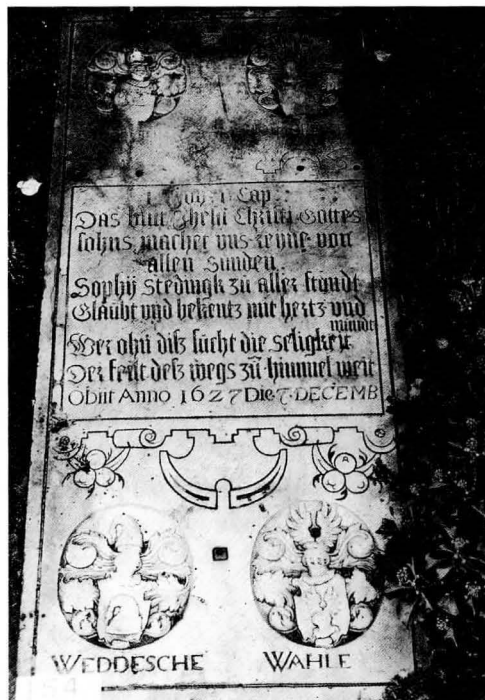 1 Joh 1 Cap
Das blut Jhesu Christi Gottes
sohns machet vns reyne von
allen Sunden
Sophij Stedingk zu aller stondt
Glaubt vnd bekentz mit hertz vnd
mundt
Wer ohn diß sucht die seligkeit
Der feilt deß wegs zů himmel weit
Obiit Anno 1627 Die 7 DECEMB
WEDDESCHE WAHLE